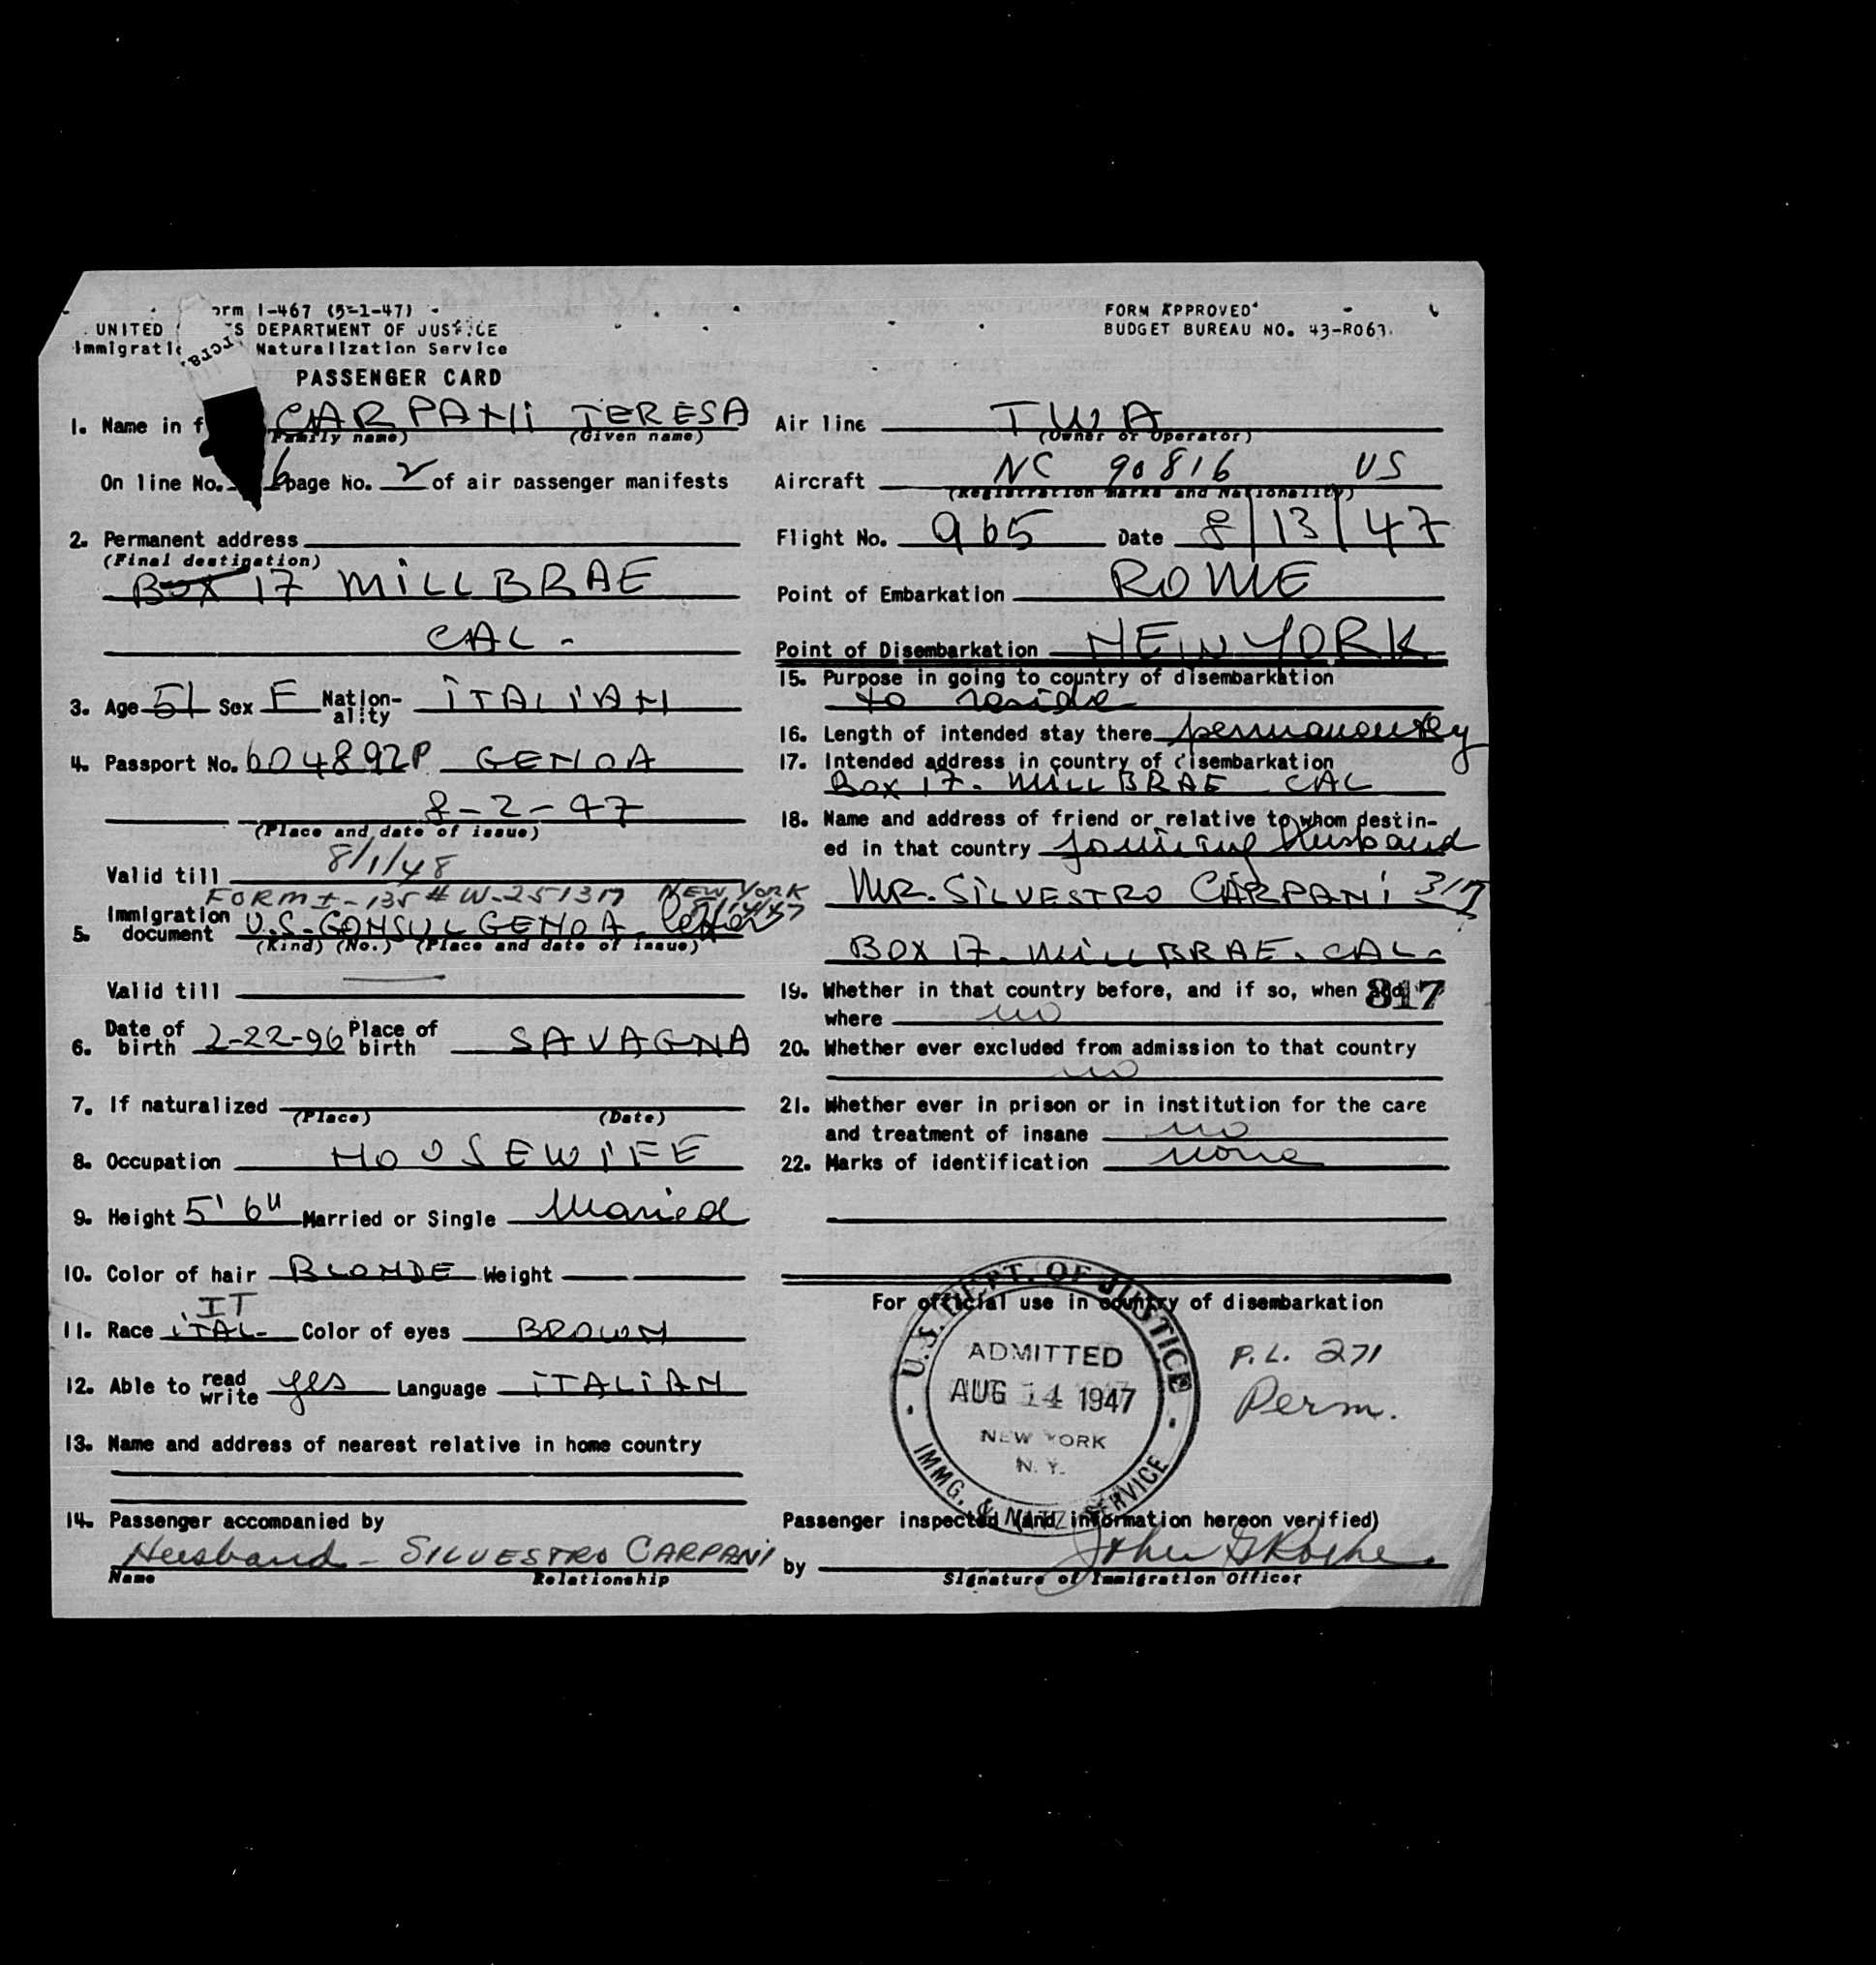 orm I-467 (5-1-47)
UNITED S DEPARTMENT OF JUSTICE
Immigrati Naturalization Service
PASSENGER CARD
FORM APPROVED
BUDGET BUREAU NO. 43-R063.
1. Name in f CARPANI TERESA
(Family name) (Given name)
On line No. 6 page No. 2 of air passenger manifests
2. Permanent address
(Final destination)
Box 17 MILLBRAE
CAL -
3. Age 51 Sex F Nation-ality ITALIAN
4. Passport No. 604892P GENOA
8-2-47
(Place and date of issue)
Valid till 8/1/48
FORM I-135 # W-251317 NEW YORK
8/14/47
5. Immigration document U.S. CONSUL GENOA letter
(Kind) (No.) (Place and date of issue)
Valid till
6. Date of birth 2-22-96 Place of birth SAVAGNA
7. If naturalized
(Place) (Date)
8. Occupation HOUSEWIFE
9. Height 5' 6" Married or Single Maried
10. Color of hair BLONDE Weight
IT
11. Race ITAL- Color of eyes BROWN
12. Able to read write yes Language ITALIAN
13. Name and address of nearest relative in home country
14. Passenger accompanied by
Husband - SILVESTRO CARPANI
Name Relationship
Air line TWA
(Owner or Operator)
Aircraft NC 90816 US
(Registration Marks and Nationality)
Flight No. 965 Date 8/13/47
Point of Embarkation ROME
Point of Disembarkation NEW YORK
15. Purpose in going to country of disembarkation
to reside
16. Length of intended stay there permanently
17. Intended address in country of disembarkation
Box 17. MILLBRAE CAL
18. Name and address of friend or relative to whom destin-
ed in that country joining husband
MR. SILVESTRO CARPANI 317
BOX 17. MILLBRAE. CAL-
19. Whether in that country before, and if so, when and 317
where no
20. Whether ever excluded from admission to that country
no
21. Whether ever in prison or in institution for the care
and treatment of insane no
22. Marks of identification none
For official use in country of disembarkation
U.S. DEPT. OF JUSTICE
ADMITTED
AUG 14 1947
NEW YORK
N. Y.
IMMG. & NATZ SERVICE
P.L. 271
Perm.
Passenger inspected (and information hereon verified)
by John G Roche
Signature of Immigration Officer